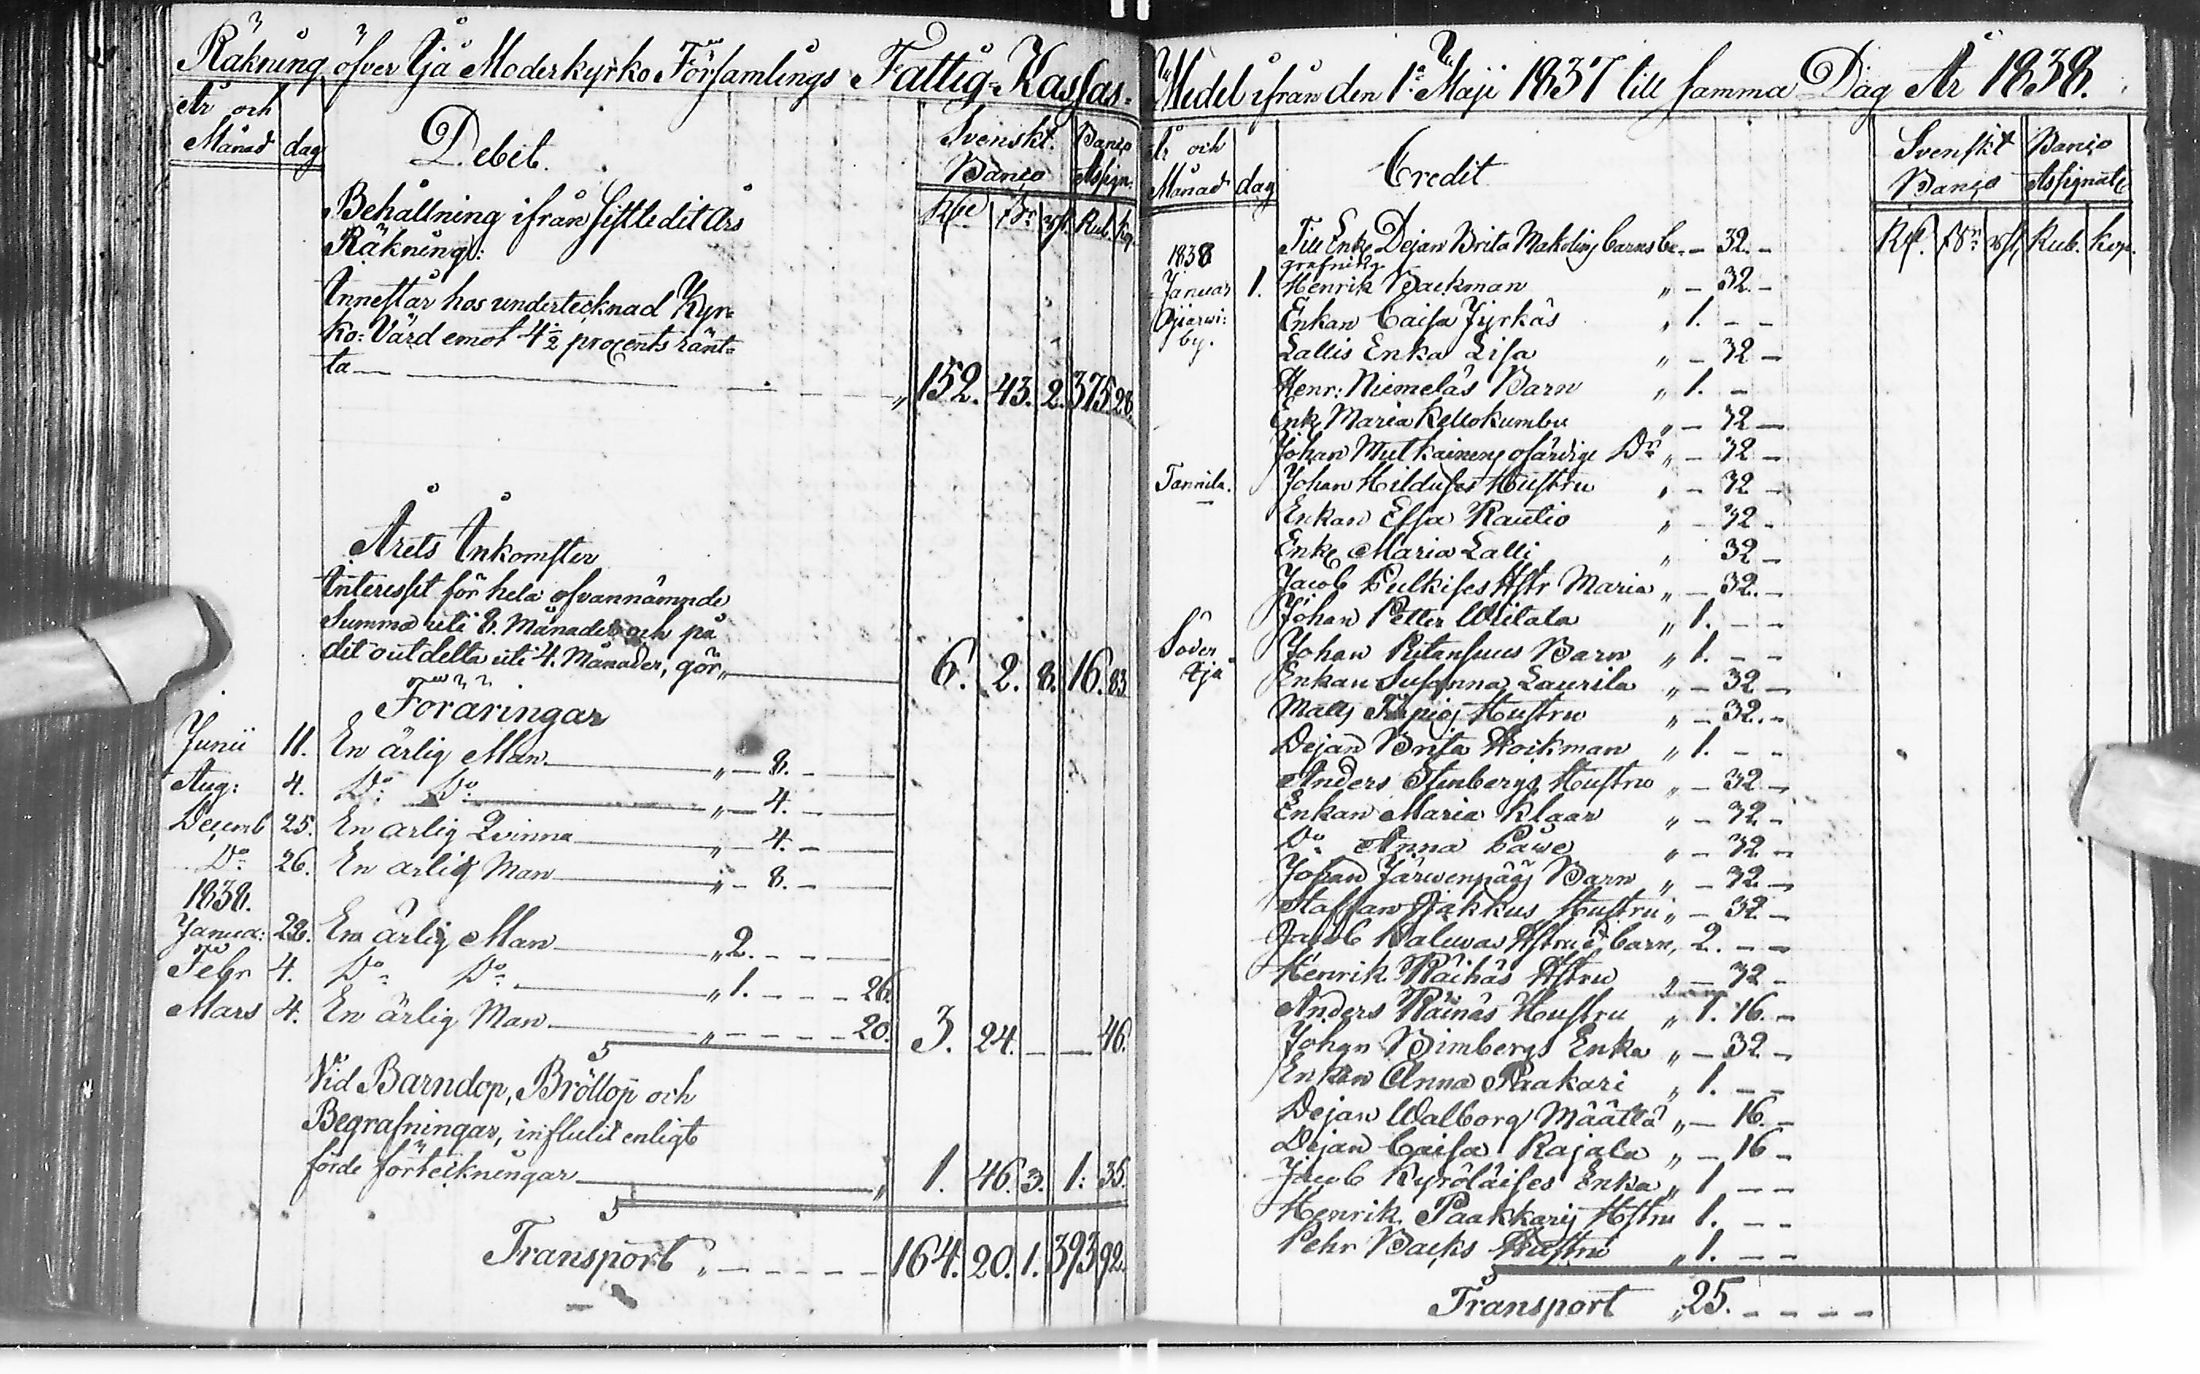 Räkning öfver Ijå Moderkyrko Församlings Fattig-Kassas-
År och
Månad dag
Debet.
Svenskt. Banco
Banco Assign.
Rub. Kop.
Behållning ifrån sistledit Års
Räkning:
Innestår hos undertecknad Kyr-
ko-Värd emot 4½ procents ränt-
ta 152. 43. 2. 375 28.
Årets Inkomster
Interesset för hela ofvannämnde
Summa uti 8. Månader och på
det outdelta uti 4. Månader, gör 6. 2. 8. 16. 83.
Föräringar
Junii 11. En ärlig Man " — 8. —
Aug: 4. Do Do " — 4. —
Decemb 25. En ärlig Qvinna " — 4. —
Do 26. En ärlig Man " — 8. —
1838.
Janua: 28. En ärlig Man " 2. — —
Febr 4. Do Do " 1. — — — 26.
Mars 4. En ärlig Man " — — — — 20. 3. 24. — — 46.
Vid Barndop, Bröllop och
Begrafningar, influtit enligt
förde förteckningar " 1. 46. 3. 1. 35.
Transport " — — — — 164. 20. 1. 393 92.
Medel ifrån den 1a Maji 1837 till samma Dag År 1838.
År och
Månad dag
Credit
Svenskt Banco
Banco Assignat:
Rub. Kop.
1838 Till Enk. Dejan Brita Barns be- — 32. —
grafning
Januar 1. Henrik Backman " — 32. —
Enkan Caisa Jyrkäs " 1. — —
by. Lallis Enka Lisa " — 32 —
Henr: Niemeläs Barn " 1. —
Enk. Maria Kellokumbu " — 32 —
Johan ofärdige Dr " — 32 —
Tannila. Johan Hustru " — 32 —
Enkan Essa Rautio " — 32 —
Enk. Maria Lalli " 32 —
Jacob Pulkises Hstr Maria " — 32. —
Johan Petter Wiitala " 1. — —
Söder Johan Barn " 1. — —
Ijå Enkan Susanna Laurila " — 32 —
Matts Tapios Hustru " — 32. —
Dejan Brita Hoikman " 1. — —
Anders Stenbergs Hustru " — 32 —
Enkan Maria Klaar " — 32 —
Do Anna Påwe " — 32 —
Johan Järwenpääs Barn " — 32 —
Staffan Hustru " — 32 —
Jacob Hstru o barn, 2. — —
Henrik Räihäs Hstru " — 32 —
Anders Räinäs Hustru " 1. 16. —
Johan Bimbergs Enka " — 32 —
Enkan Anna Paakari " 1. — —
Dejan Walborg Määttä " — 16. —
Dejan Caisa Rajala " — 16 —
Jacob Kyröläises Enka " 1 — —
Henrik Paakkaris Hstru 1. — —
Pehr Backs Hustru " 1. — —
Transport " 25. — — — —